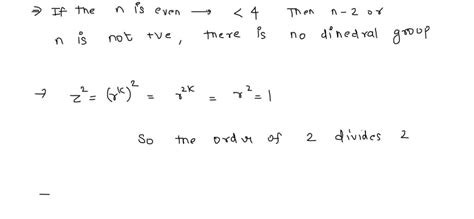 ⇒ If the n is even → < 4 Then n-2 or
n is not +ve, there is no dihedral group
→ z² = (r^k)² = r^2k = r² = 1
So the order of 2 divides 2